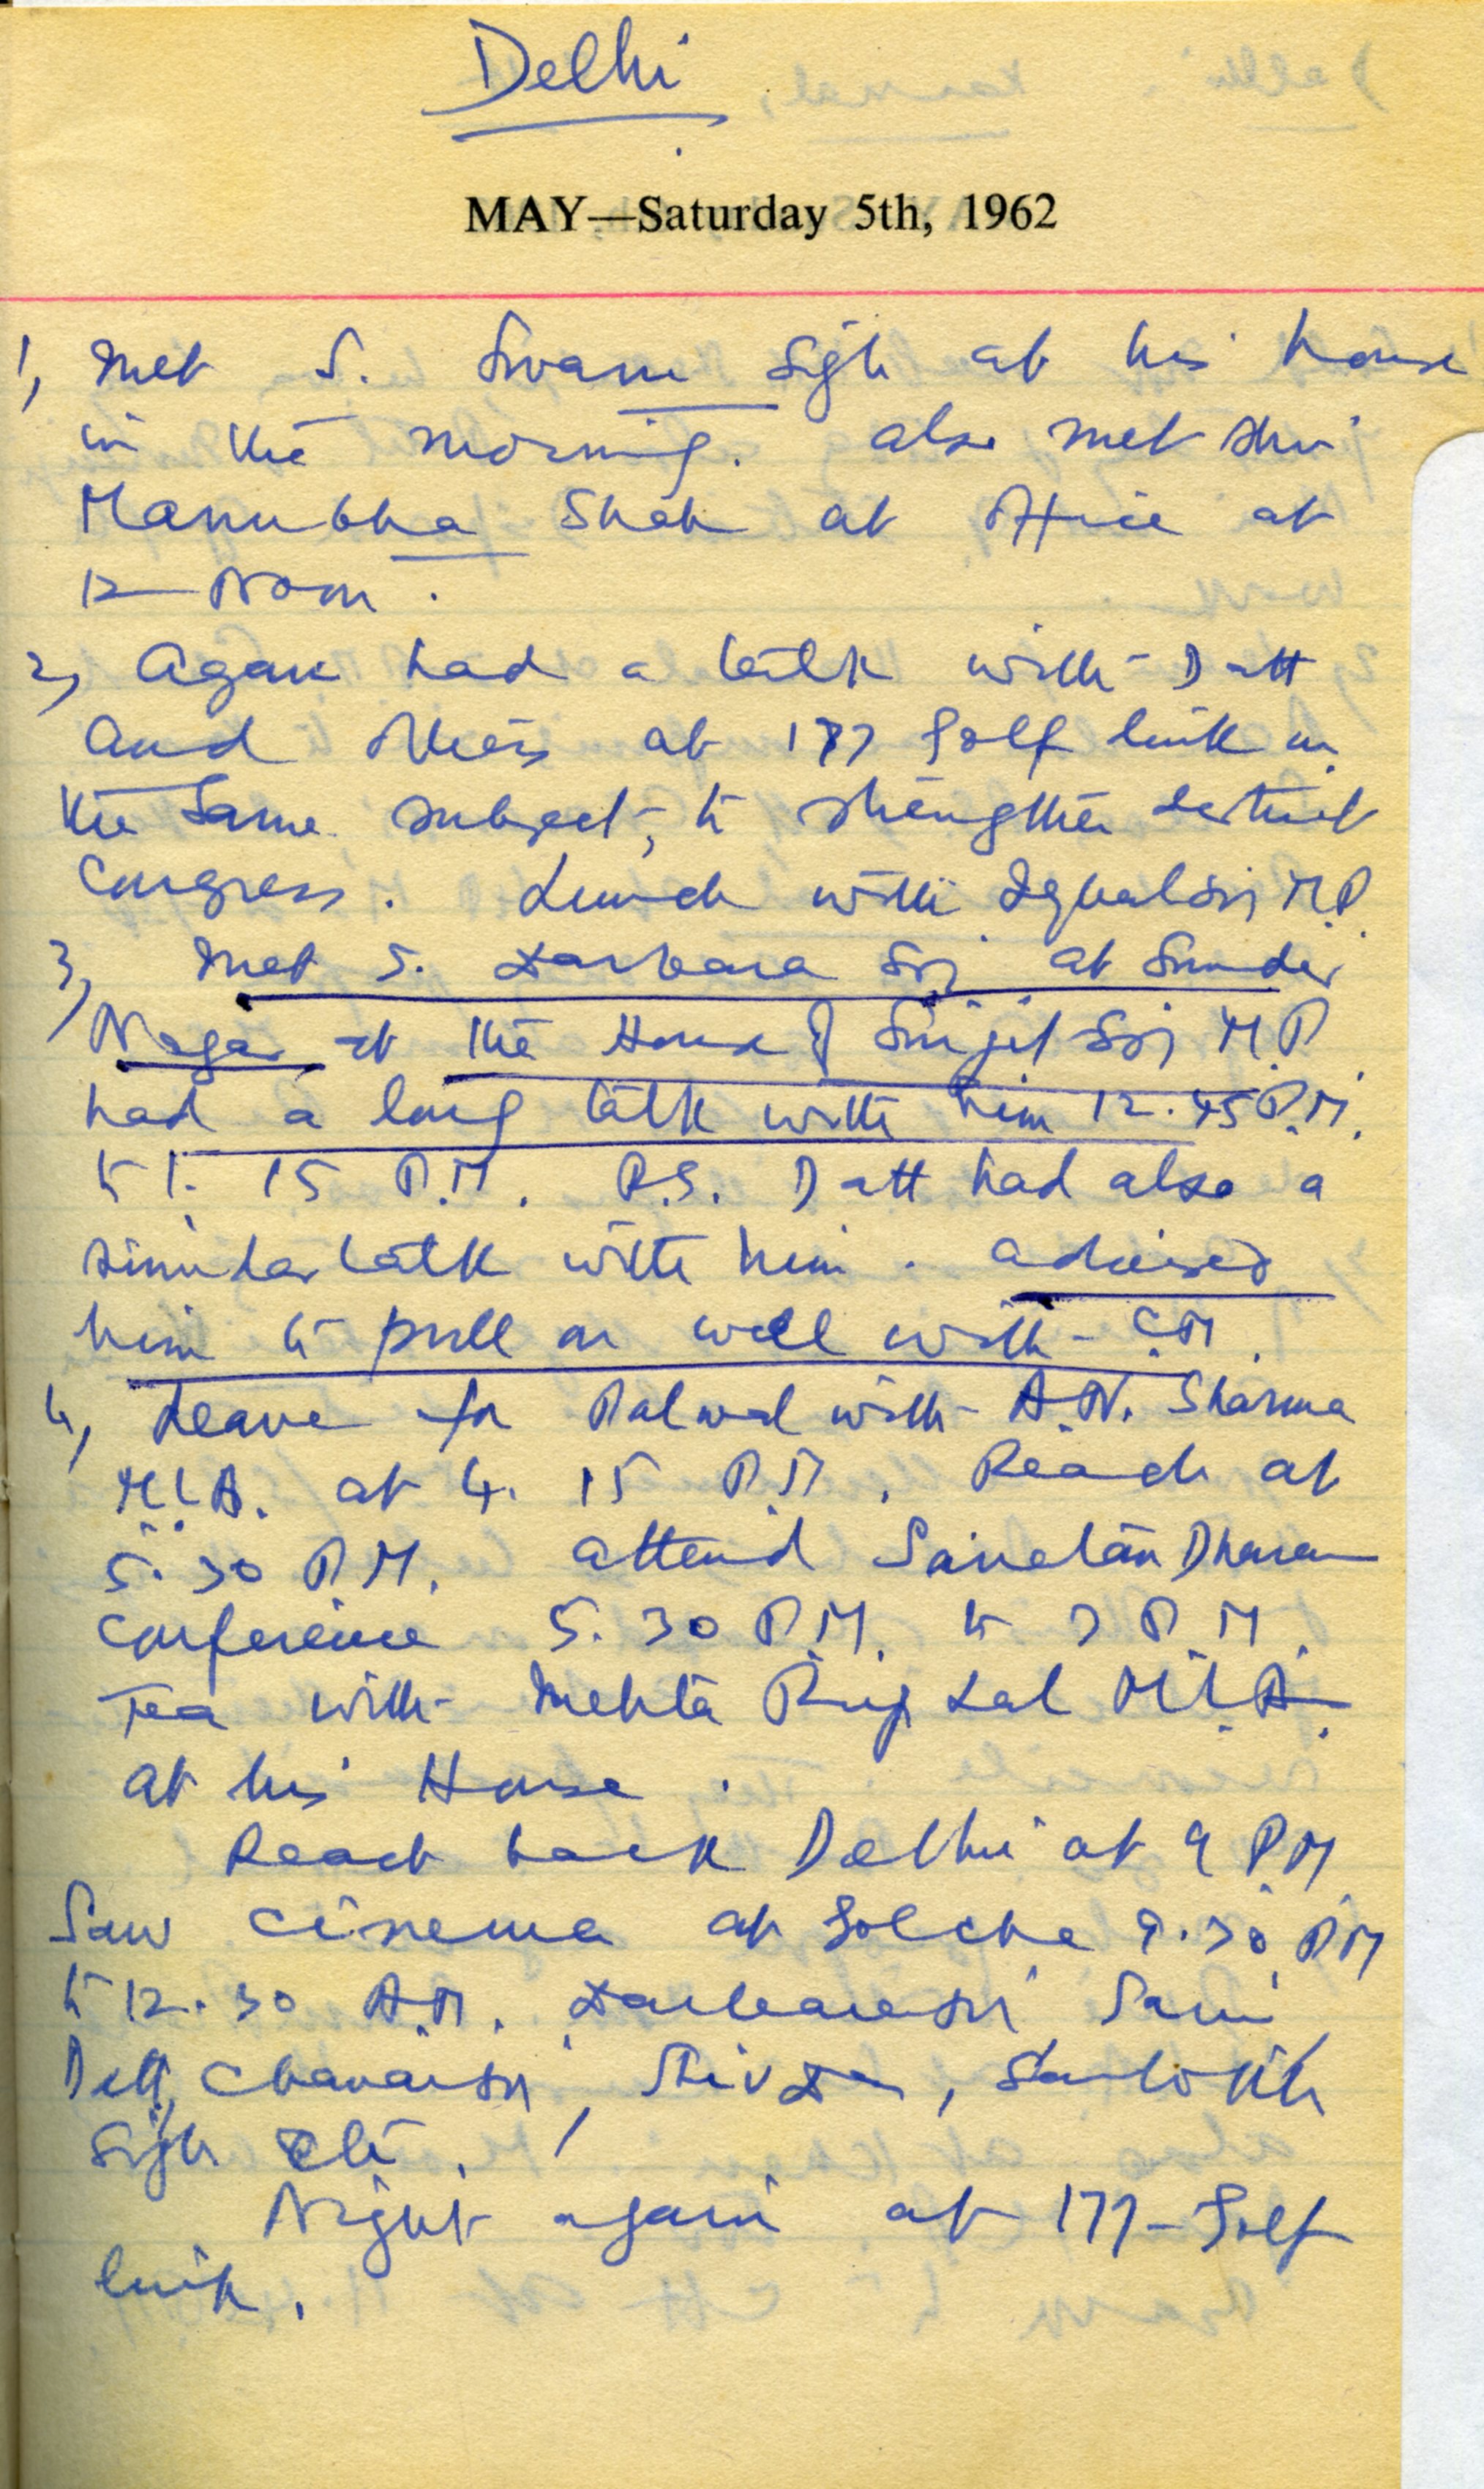 Delhi
MAY—Saturday 5th, 1962
1, Met S. Swarn Sigh at his house
in the morning. also met Shri
Manubha Shah at Office at
12 Noon.
2, Again had a talk with Datt
and others at 177 Golf link on
the same subject, to strengthen district
Congress. Lunch with Iqbal Sij M.P.
3, Met S. Darbara Sij at Sunder
Nagar at the House of Surjit Sij M.P.
had a long talk with him 12.45 P.M.
to 1.15 P.M. P.S. Datt had also a
similar talk with him. advised
him to pull on well with C.M.
4, Leave for Palwal with A.N. Sharma
M.L.A. at 4.15 P.M. Reach at
5.30 P.M. attend Sanatan Dharam
Conference 5.30 P.M. to 7 P.M.
Tea with Mehta Rup Lal M.L.A.
at his House.
Reach back Delhi at 9 P.M.
Saw cinema at Golcha 9.30 P.M
to 12.30 A.M.
Datt,
Sigh etc.
Night again at 177-Golf
link.